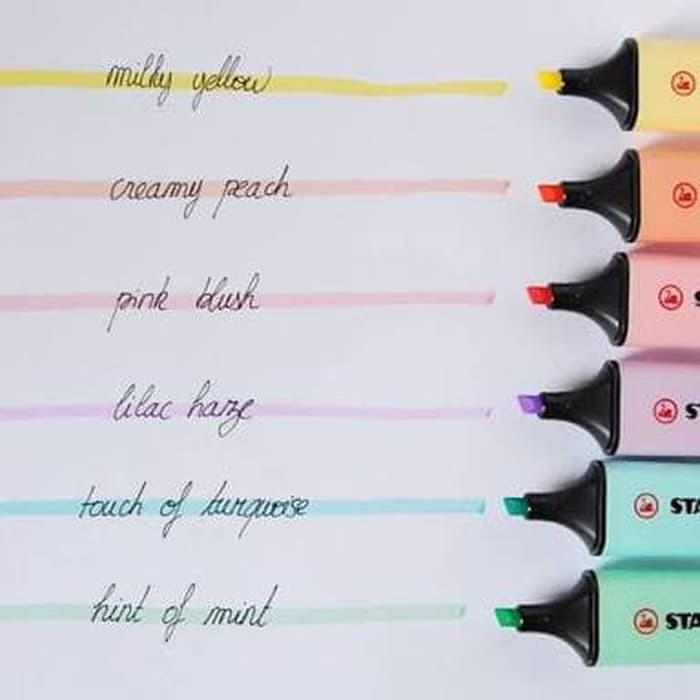 milky yellow
creamy peach
pink blush
S
lilac haze
ST
touch of turquoise
STA
hint of mint
STA